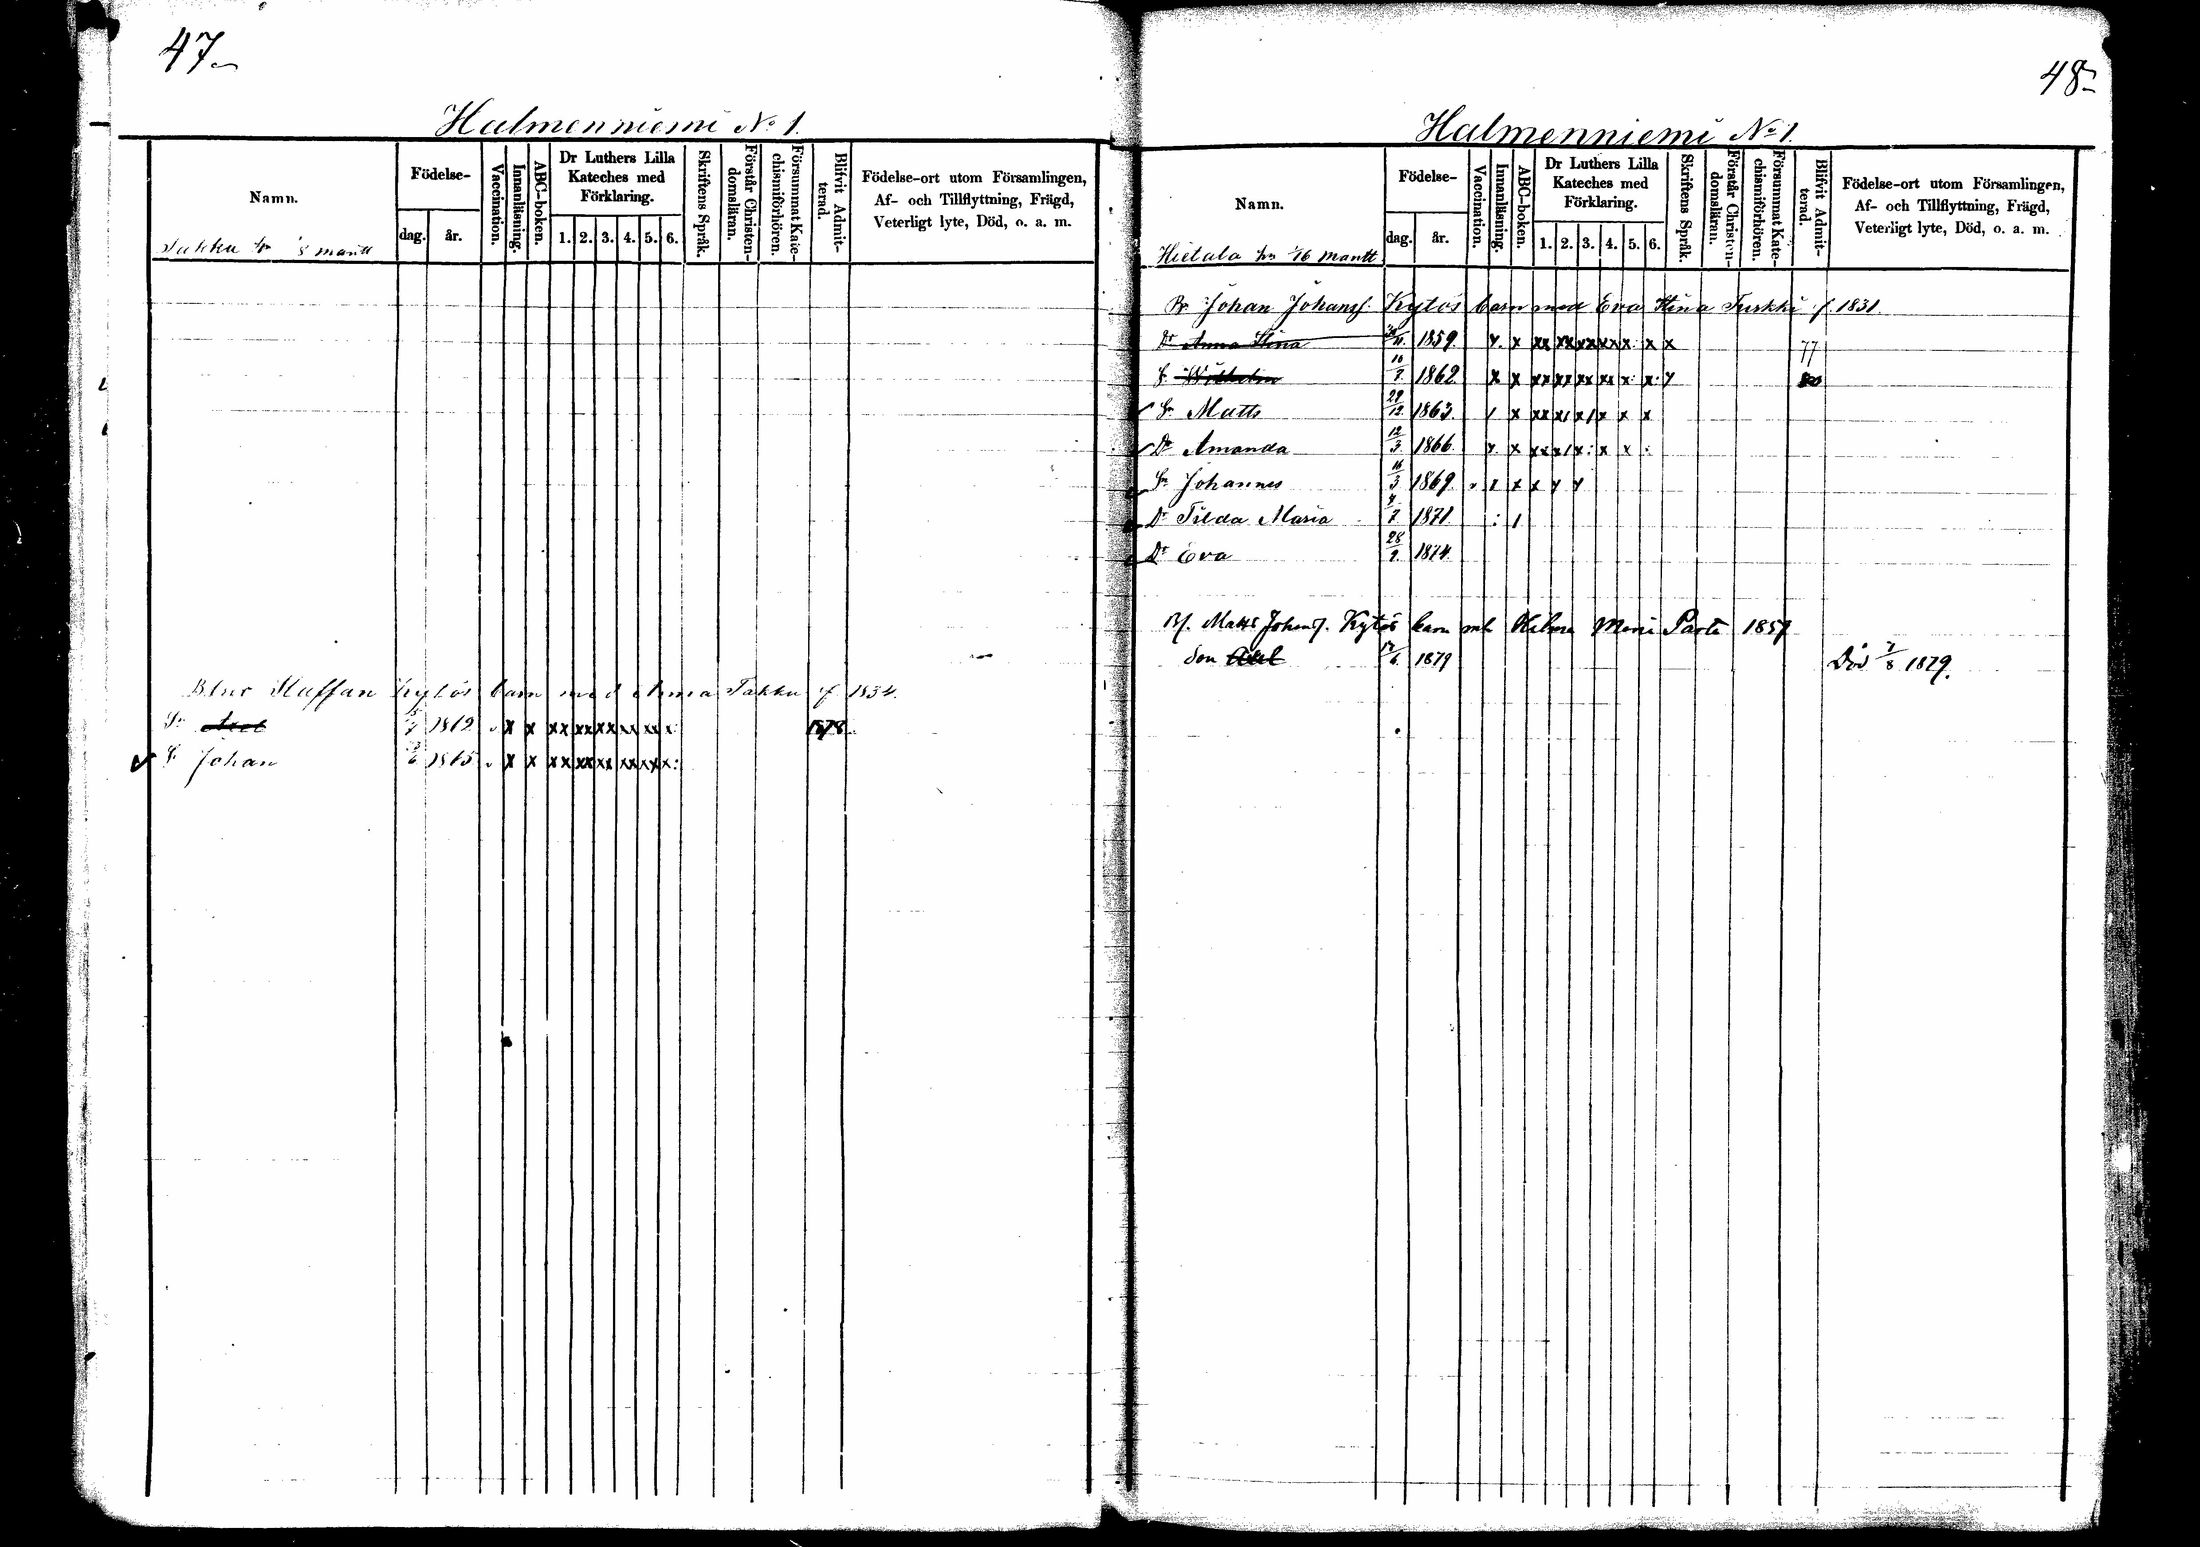 47
Halmenniemi No 1.
Namn. Födelse- dag. år. Vaccination. Innanläsning. ABC-boken. Dr Luthers Lilla Kateches med Förklaring. 1. 2. 3. 4. 5. 6. Skriftens Språk. Förstår Christendomsläran. Försummat Katechismiförhören. Blifvit Admitterad. Födelse-ort utom Församlingen, Af- och Tillflyttning, Frägd, Veterligt lyte, Död, o. a. m.
Takku hn 8 mantt
Staffan Kytös barn med Anna Takku f 1834.
Sn Axel 1862 x x xx xx xx xx xx x 1878
Sn Johan 1865 x x xx xx xx xx xx x:
48
Halmenniemi No 1.
Namn. Födelse- dag. år. Vaccination. Innanläsning. ABC-boken. Dr Luthers Lilla Kateches med Förklaring. 1. 2. 3. 4. 5. 6. Skriftens Språk. Förstår Christendomsläran. Försummat Katechismiförhören. Blifvit Admitterad. Födelse-ort utom Församlingen, Af- och Tillflyttning, Frägd, Veterligt lyte, Död, o. a. m.
Hietala hn 1/16 mantt
Johan Johans. Kytös barn med Eva Stina Turkki f. 1831.
Dr Anna Stina 1859 77
S. Wilhelm 1862
Sn Matts 29/12 1863.
Dr Amanda 12/3 1866
Sn Johannes 16/3 1869
Dr Tilda Maria 1871
Dr Eva 28/9 1874.
Matts Johans. Kytös barn Maria 1857
Son Axel 1879 Död 7/8 1879.